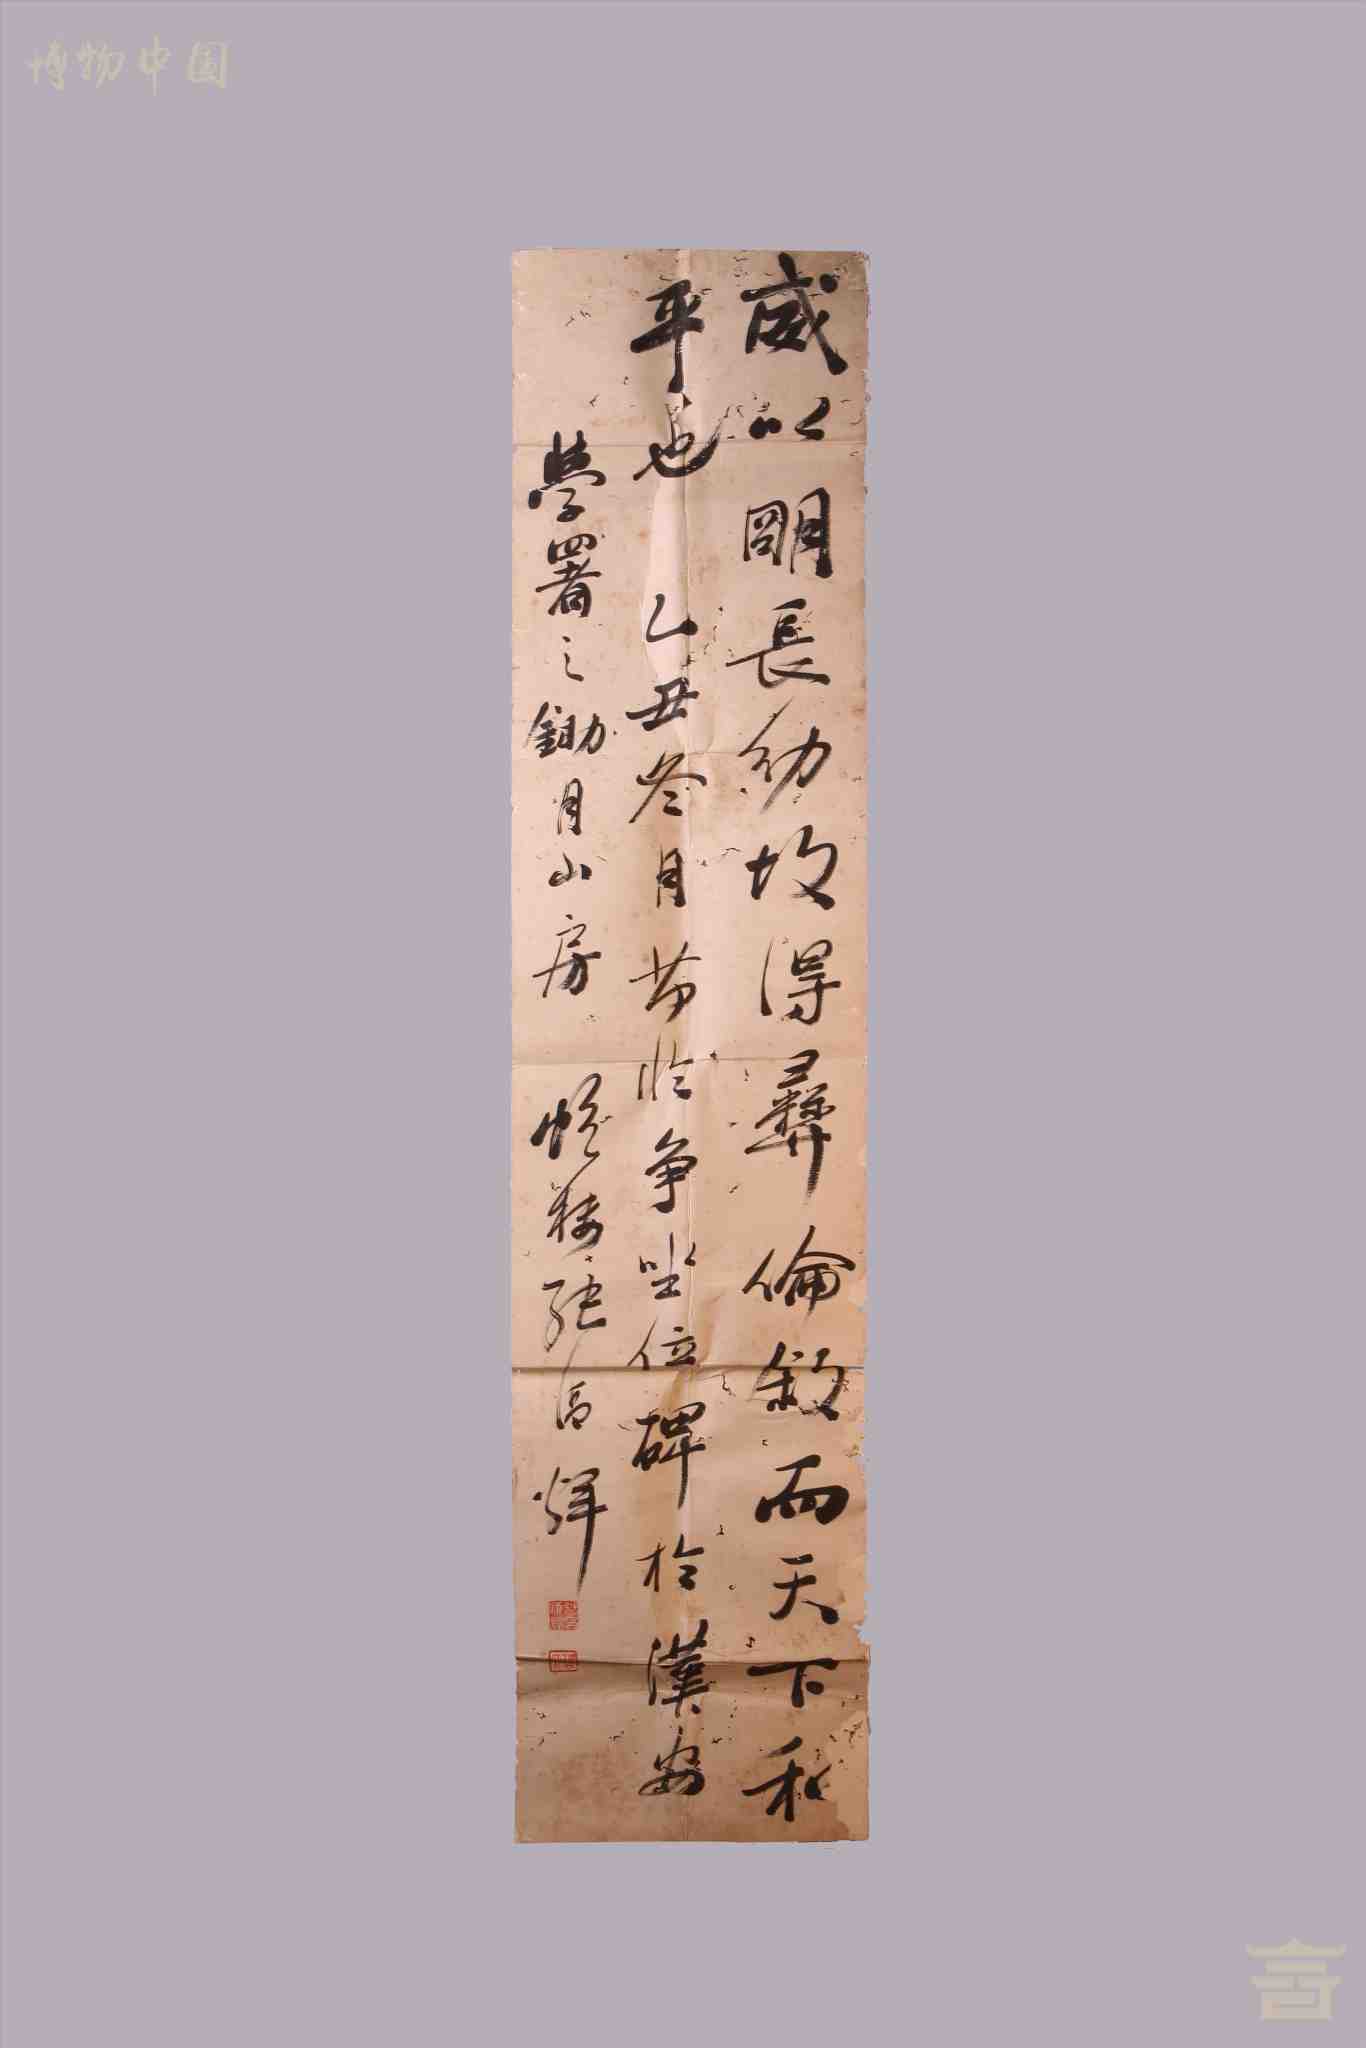 博物中国
咸以明長幼故得彝倫敘而天下和
平也 乙丑冬月节臨争坐位碑於漢安
學署之鋤月山房
煇